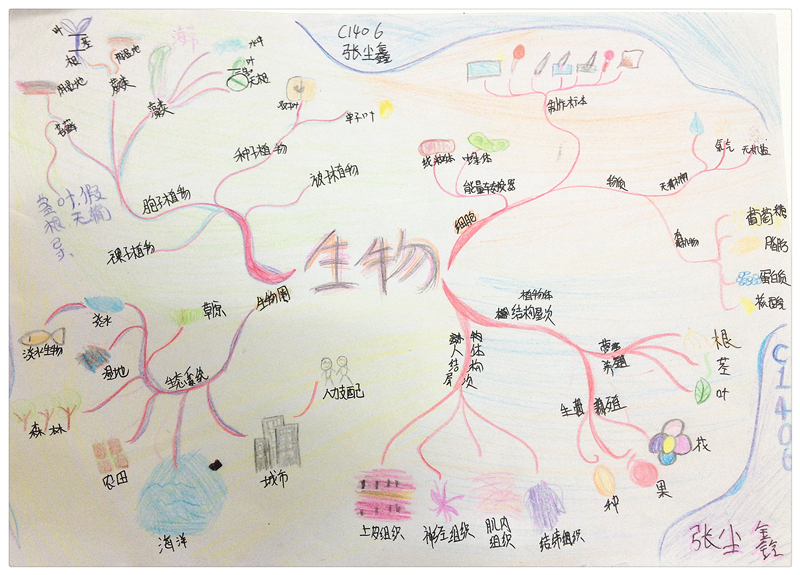 C1406
张尘鑫
叶
茎
根
阴湿地
水中
叶
无根
阴湿地
藻类
苔藓
双叶
单子叶
种子植物
被子植物
孢子植物
裸子植物
茎叶,假
根无
导
生物
生物圈
制作标本
线粒体
叶绿体
能量转换器
细胞
物质
氧气
无机盐
无机物
有机物
葡萄糖
脂肪
蛋白质
核酸
淡水
草原
淡水生物
湿地
生态系统
森林
农田
海洋
城市
人力支配
植物体
结构层次
人体
结构
层次
营养
生殖
根
茎
叶
花
果
种
上皮组织
神经组织
肌肉
组织
结缔组织
C1406
张尘鑫